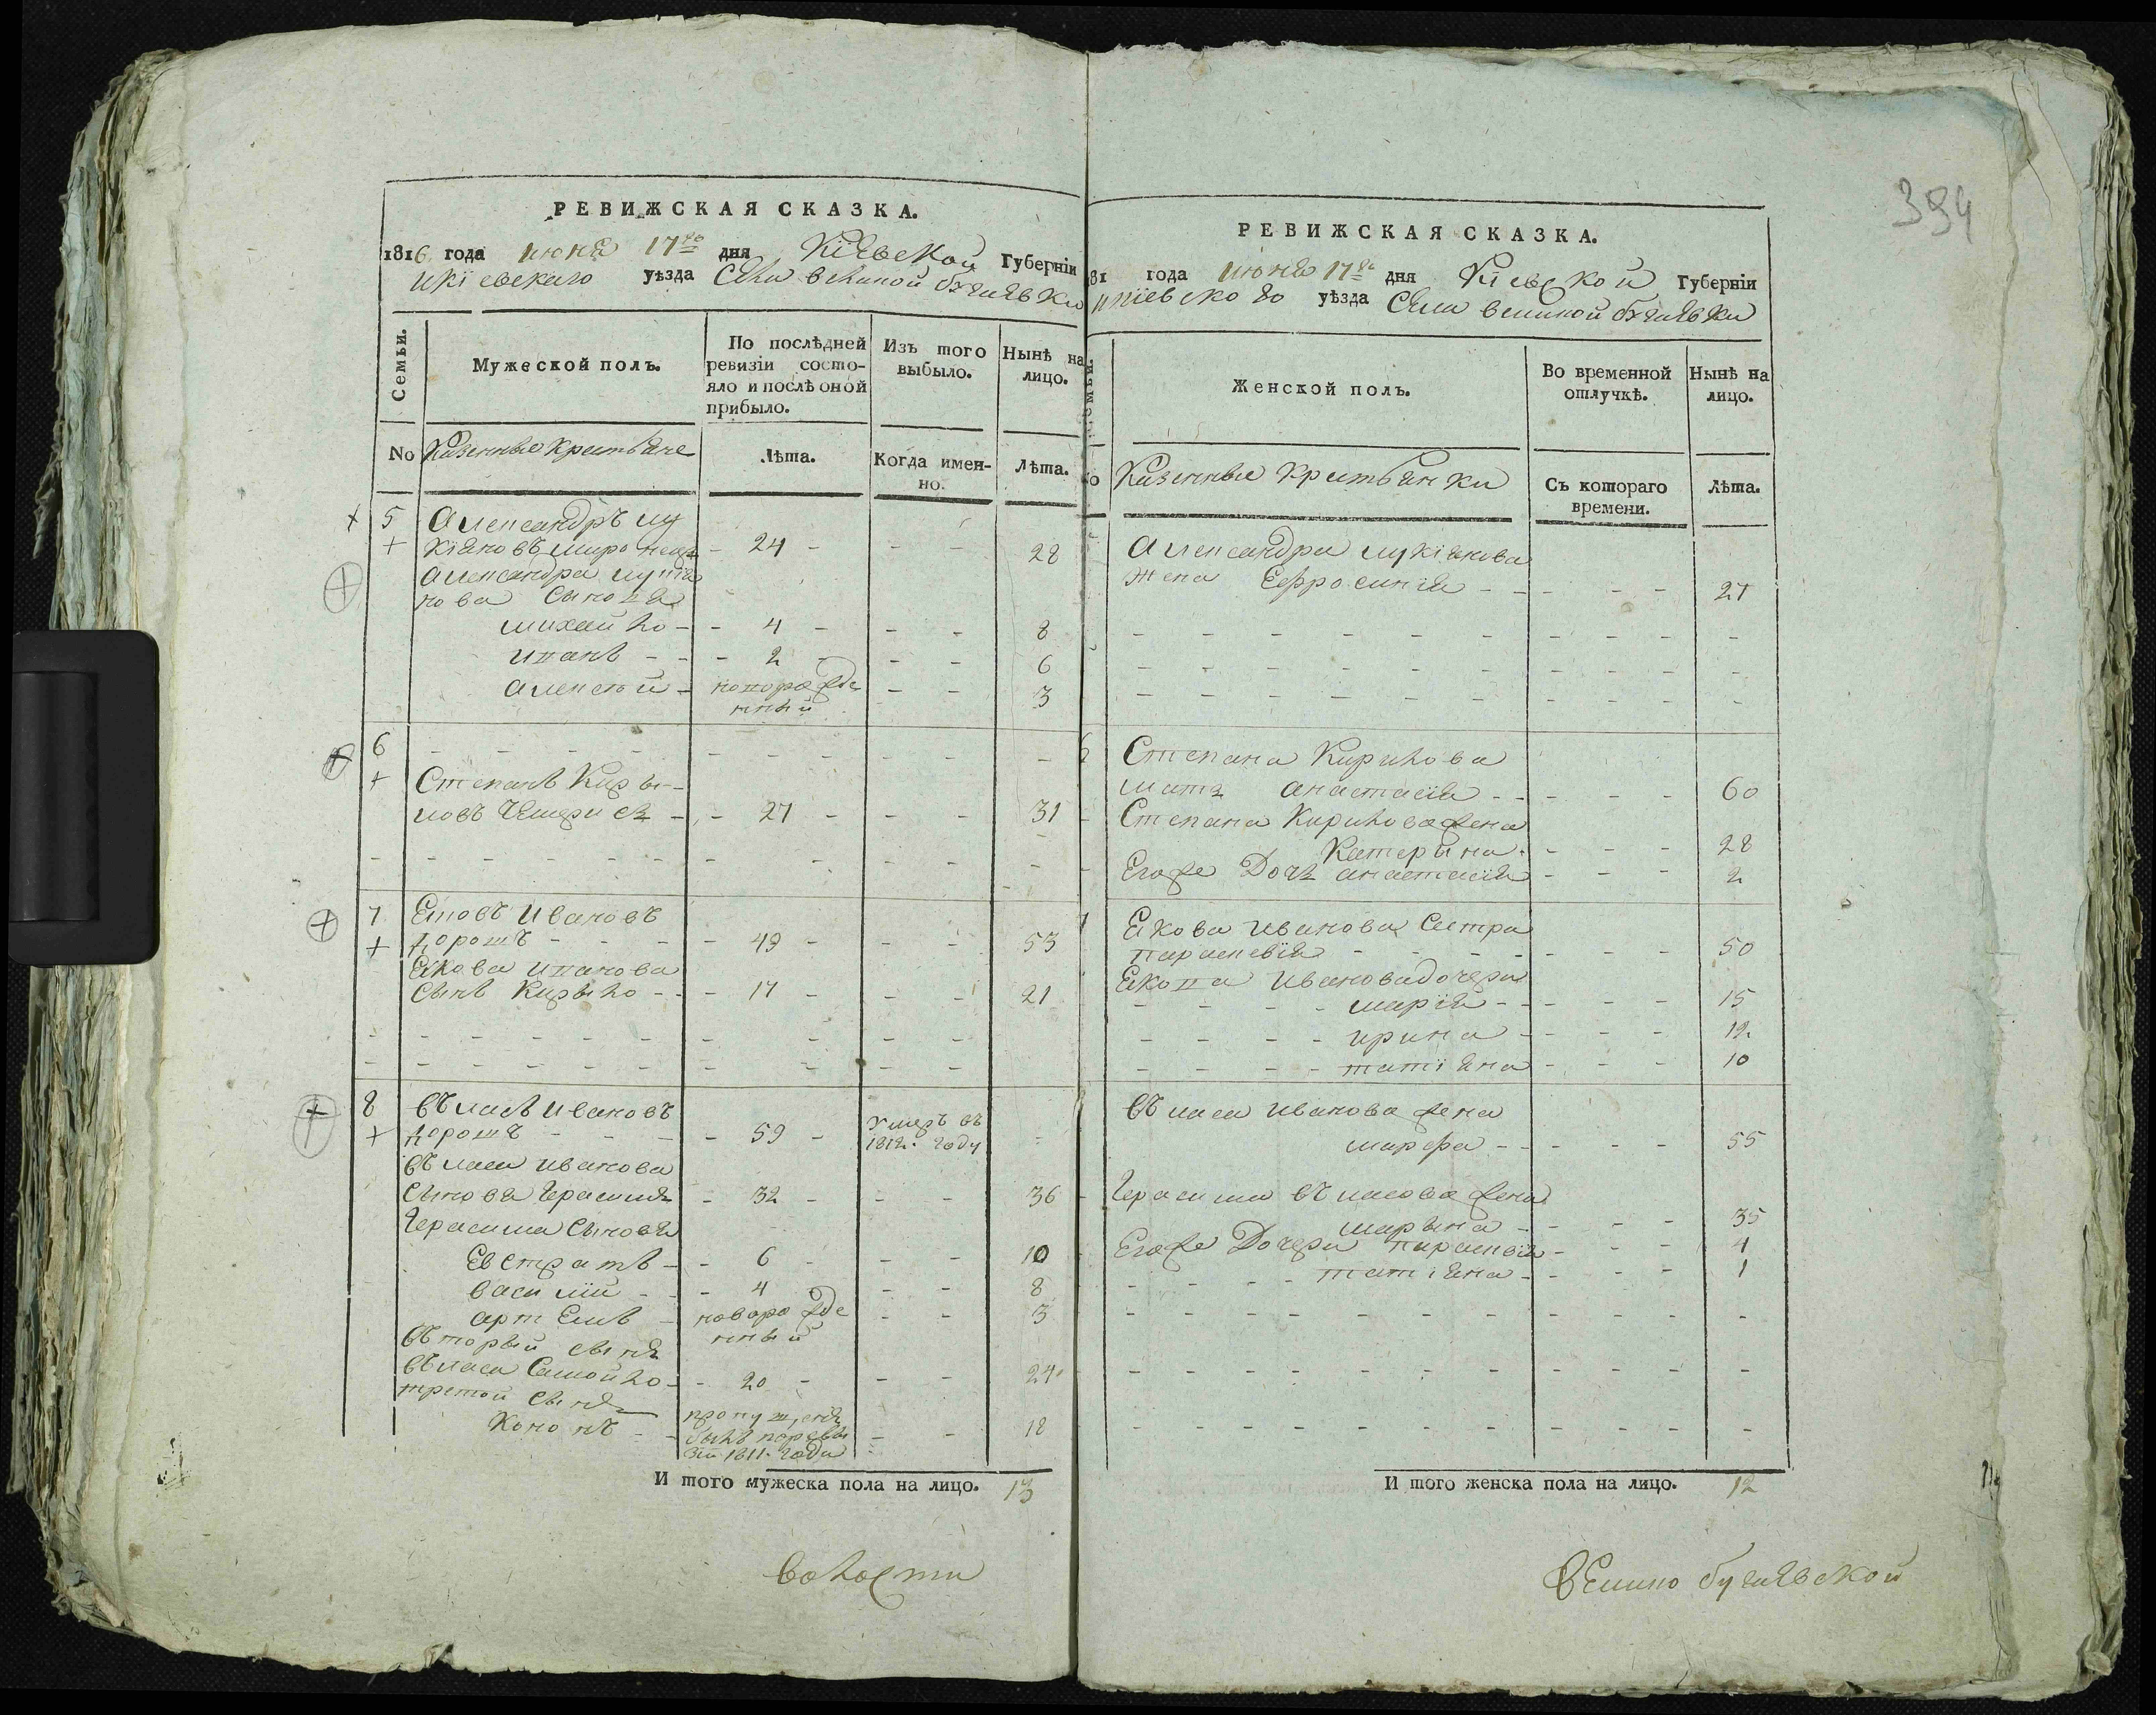 394
РЕВИЖСКАЯ СКАЗКА.
1816 года июня 17го дня Кіевской Губерніи
икіевскаго уѣзда Села великой бугаевки
Семьи.
Мужеской полъ.
По послѣдней
ревизіи состо-
яло и послѣ оной
прибыло.
Изъ того
выбыло.
Нынѣ на
лицо.
No
Казенные крестьяне
Лѣта.
Когда имен-
но.
Лѣта.
5 Александръ лу
кіяновъ - 24 - - - 28
Александра лукія
нова сыновя
михайло - - 4 - - - 8
иванъ - - - 2 - - - 6
алексѣй - новорожде - - 3
нный
6 - - - - - - - - - -
Степанъ Кири-
ловъ - - 27 - - - 31
- - - - - - - - - -
7 Еіковъ Ивановъ
дорошъ - - - - 49 - - - 53
Еікова иванова
сынъ Кирыло - - - 17 - - - 21
- - - - - - - - - -
- - - - - - - - - -
8 Въласъ Ивановъ
дорошъ - - - - 59 - умеръ въ
1812. году -
Въласа иванова
сыновя Герасимъ - 32 - - - 36
Герасима сыновя
Евстратъ - - 6 - - - 10
василій - - - 4 - - - 8
артемъ - новорожде - - 3
въторый сынъ нный
въласа Самойло - - 20 - - - 24
третой сынъ
Кононъ - - пропущенъ - - 18
былъ поревы
зіи 1811. года
И того мужеска пола на лицо. 13
волости
РЕВИЖСКАЯ СКАЗКА.
81 года июня 17го дня Кіевской Губерніи
икіевского уѣзда Села великой бугаевки
Семьи.
Женской полъ.
Во временной
отлучкѣ.
Нынѣ на
лицо.
Казенные крестьянки
Съ котораго
времени.
Лѣта.
Александра лукіянова
жена Ефросинія - - - - - 27
- - - - - - - - - -
- - - - - - - - - -
- - - - - - - - - -
6 Степана Кирилова
мать анастасія - - - - - 60
Степана Кирилова жена
Катерына - - - - 28
Егоже Дочь анастасія - - - 2
7 Еікова иванова Сестра
параскевія - - - - - - - 50
Еікова Иванова дочери
- - - - марія - - - - - 15
- - - - ирина - - - - 12
- - - - татіяна - - - 10
Въласа иванова жена
марфа - - - - - 55
Герасима въласова жена
марына - - - - 35
Егоже Дочери параскевія - - - 4
- - - - татіяна - - - - 1
- - - - - - - - - -
- - - - - - - - - -
- - - - - - - - - -
И того женска пола на лицо. 12
велико бугаевской